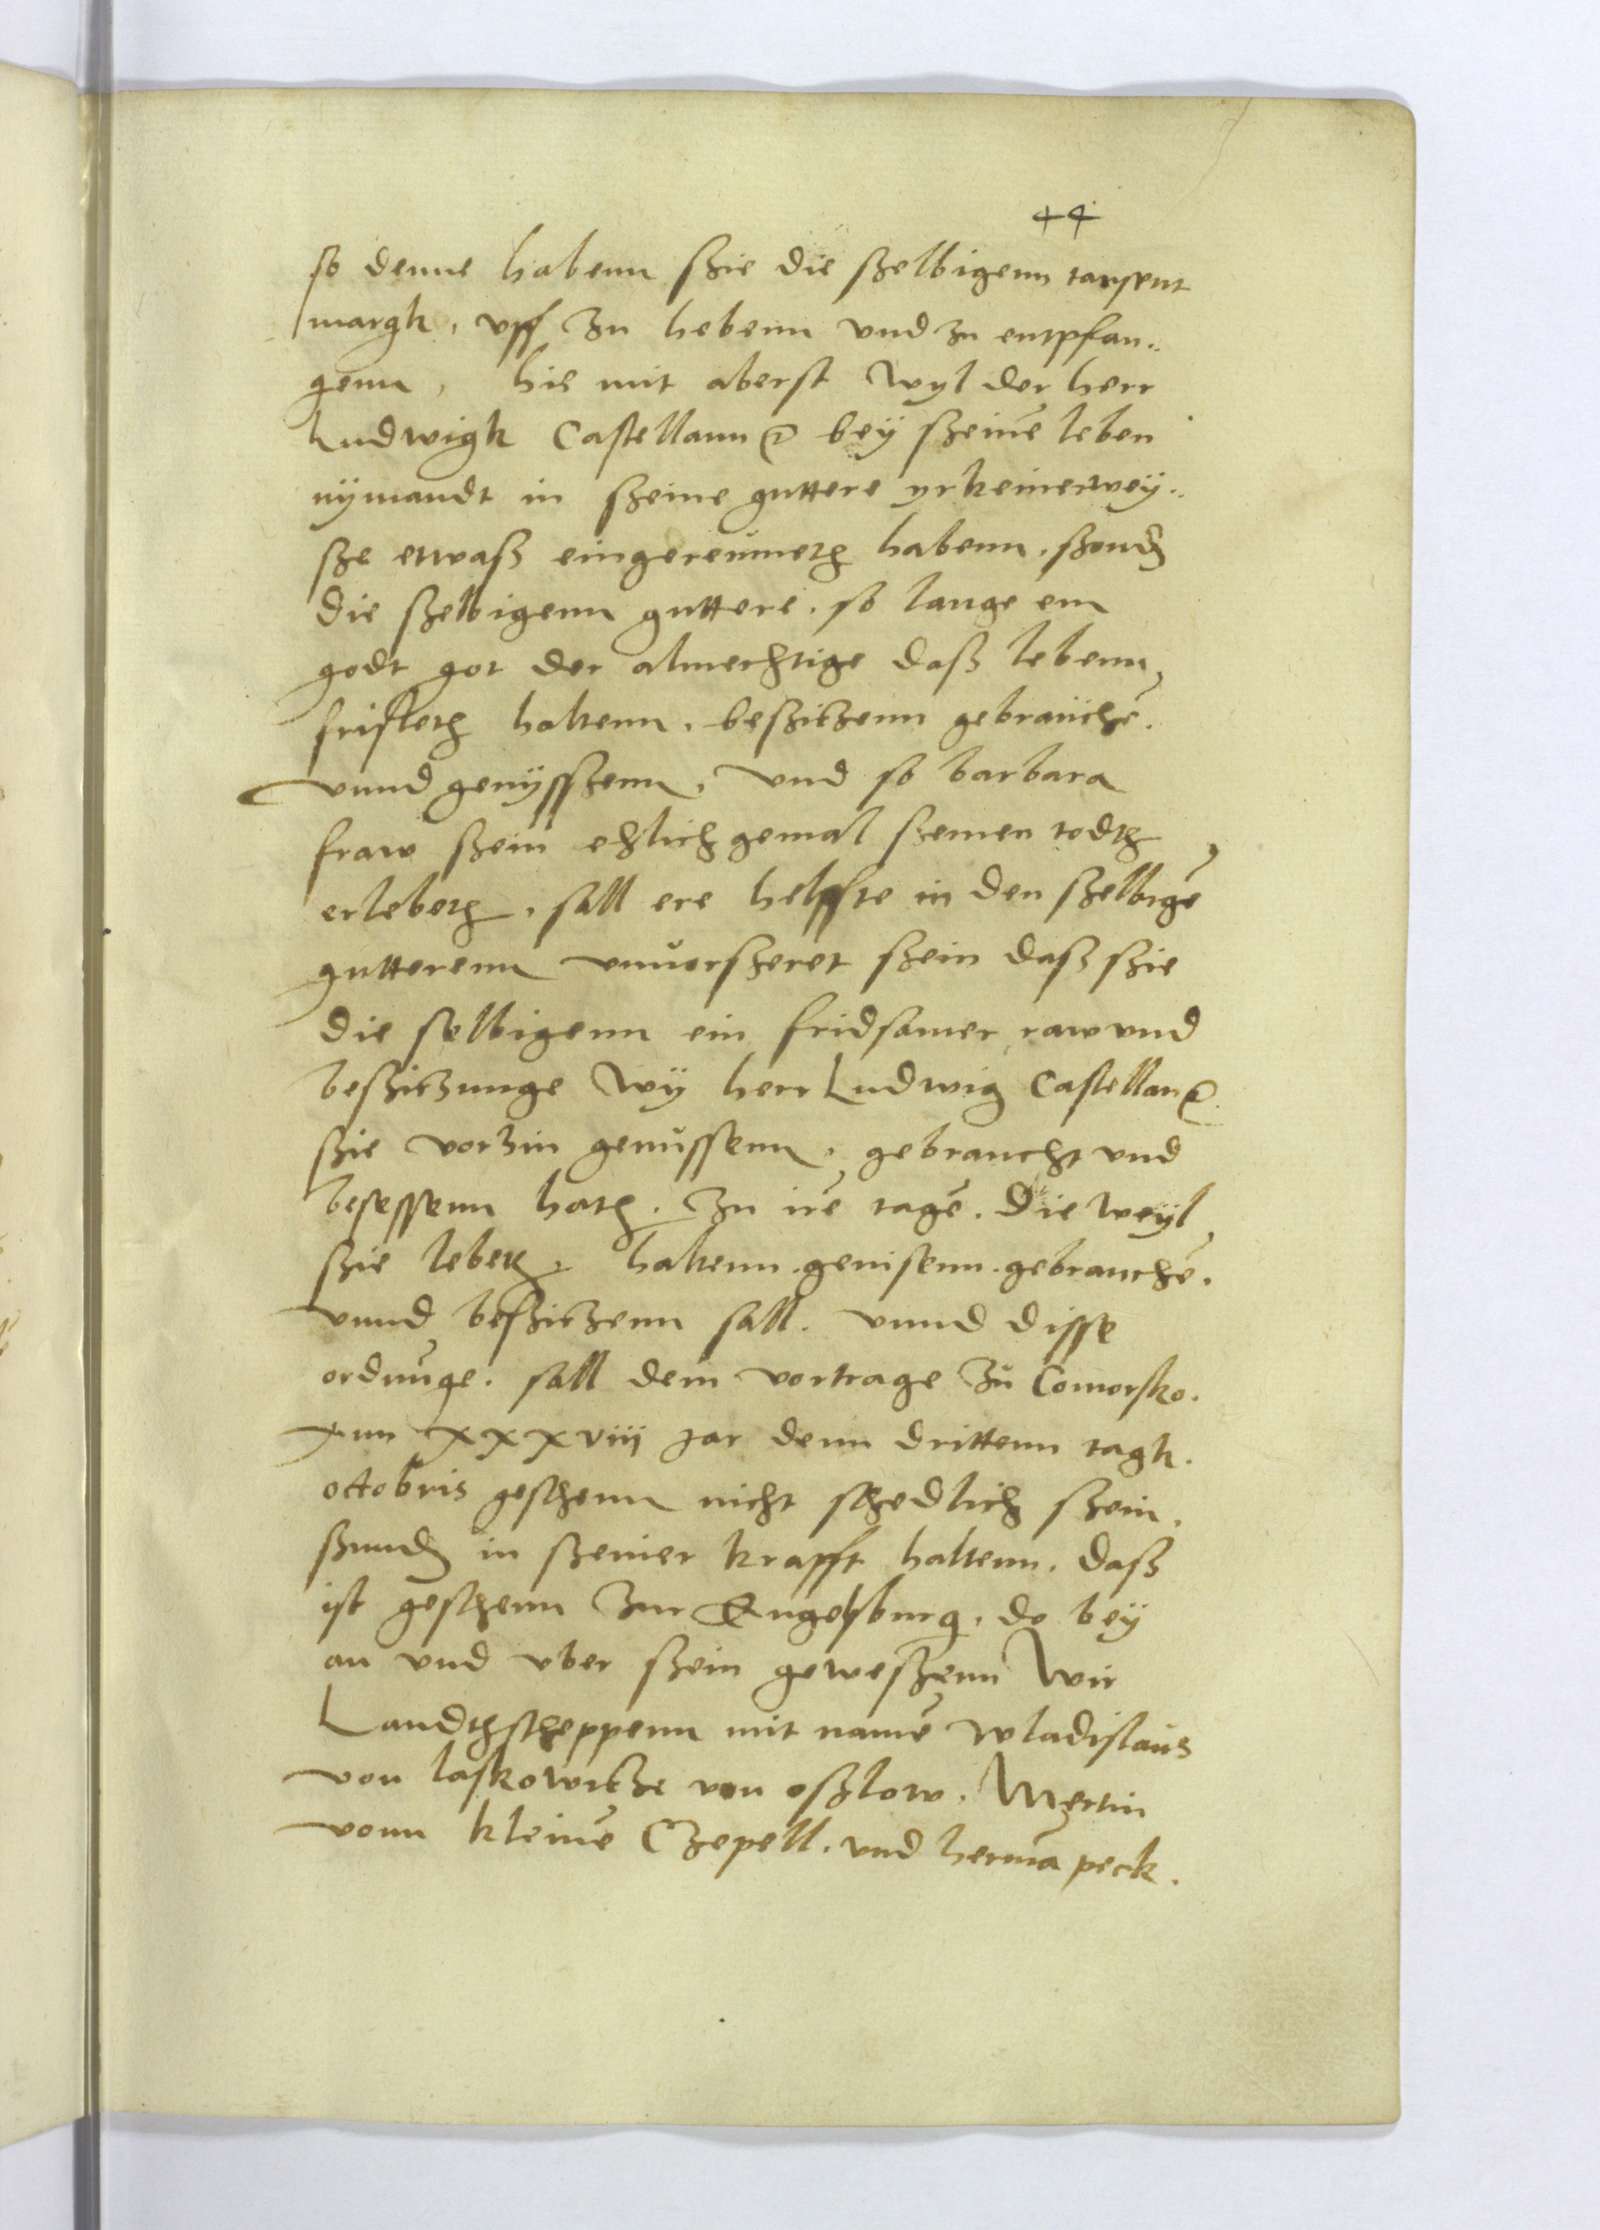 44
so denne habenn szie die szelbigenn tausent
margk, vff zu hebenn vnd zu entpfan..
genn, hie mit aberst wyl der herr
Ludwigk Castellann bey szeinē leben
nÿmandt in szeine guttere yrkeinerwey..
sze etwasz eingereumeth habenn. szond
die szelbigenn guttere. so lange em
godt got der almechtige dasz lebenn,
fristeth haltenn, beszitzenn gebrauchē.
vnnd genÿsszenn, vnd so barbara
fraw szein ehlich gemal szeinen todth
erlebeth, sall ere helffte in den szelbigē
gutterenn vnuorszeret szein dasz szie
die selbigenn ein fridsamer raw vnd
beszitzunge wÿ herr Ludwig Castellan
szie vorhin genussenn, gebraucht vnd
besessenn hath. Zu irē tagē. Die weÿl
szie lebeth, haltenn. genisenn. gebrauchē.
vnnd beszitzenn sall. vnnd disse
ordnūge. sall dem vortrage zu Comorsko.
Inn xxxviij jar denn drittenn tagk.
octobris geschenn nicht schedlich szein,
szund in szeiner krafft haltenn. dasz
ist geschenn zur Engelsburg, do beÿ
an vnd vber szein geweszenn Wir
Landthscheppenn mit namē wladislaus
von laskowitze von oszlow. Mertin
vonn kleinē Czepell. vnd hermā peck.